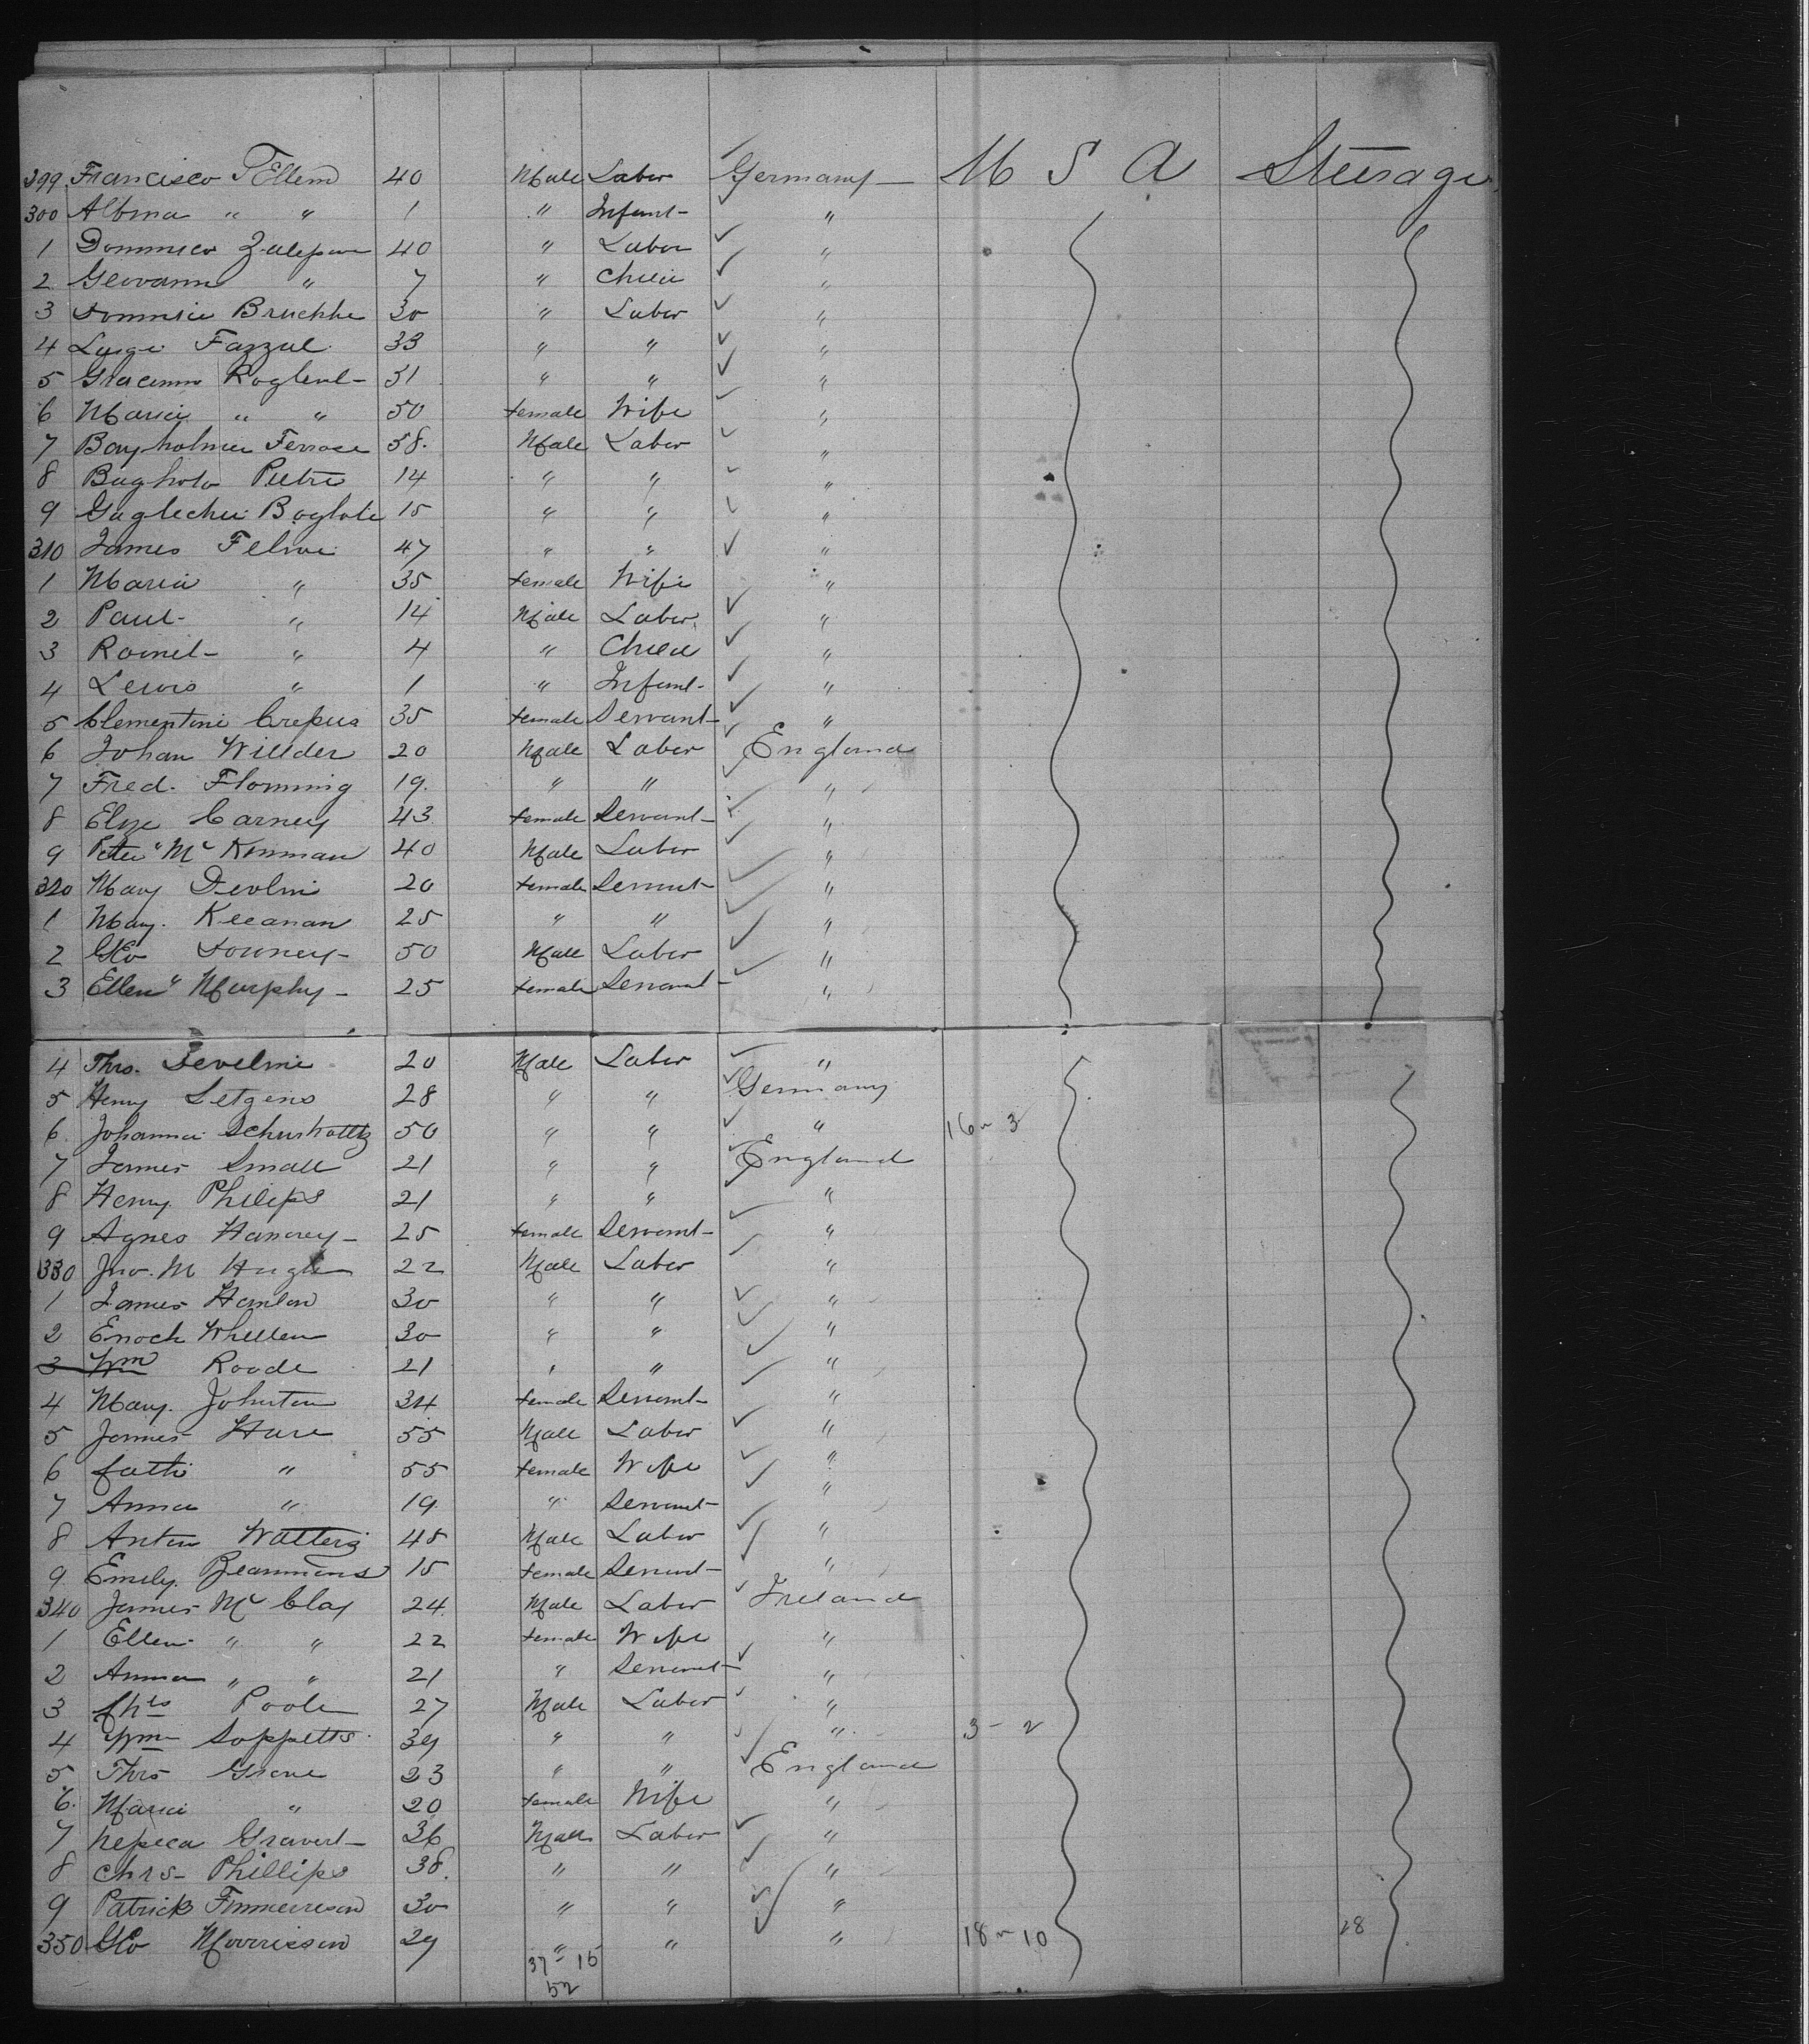 299 Francisco Tellem 40 Male Labor Germany U S A Steerage
300 Albina " " 1 " Infant "
1 Dominico 40 " Labor "
2 Geovanni " 7 " Child "
3 30 " Labor "
4 Luigi Fazzul 33 " " "
5 31 " " "
6 Maria " " 50 female Wife "
7 58. Male Labor "
8 Pietri 14 " " "
9 15 " " "
310 James 47 " " "
1 Maria " 35 female Wife "
2 Paul " 14 Male Labor "
3 " 4 " Child "
4 Lewis " 1 " Infant "
5 Clementini Crepus 35 female Servant "
6 Johan Willder 20 Male Labor England
7 Fred. Flomming 19. " " "
8 Elize Carney 43 female Servant "
9 Peter Mc Kinman 40 Male Labor "
320 Mary Devlin 20 female Servant "
1 Mary. Keeanan 25 " " "
2 Geo Downey 50 Male Labor "
3 Ellen Murphy 25 female Servant "
4 Thos. Develini 20 Male Labor "
5 Henry Letgens 28 " " Germany
6. Johanna 50 " " " 16 3
7 James Small 21 " " England
8 Henry Philips 21 " " "
9 Agnes 25 female Servant "
330 Jno. M Hugh 22 Male Labor "
1 James Hanlon 30 " " "
2 Enoch Whellen 30 " " "
3 Wm Roode 21 " " "
4 Mary. Johnston 34 female Servant "
5 James Hare 55 Male Labor "
6 Cath " 55 female Wife "
7 Anna " 19 " Servant "
8 Anton Watters 48 Male Labor "
9 Emily. 15 female Servant "
340 James Mc Clay 24 Male Labor Ireland
1 Ellen " " 22 female Wife "
2 Anna " " 21 " Servant "
3 Chs Poole 27 Male Labor "
4 Wm Soppetts 39 " " " 3 - 2
5 Thos Grave 23 " " England
6. Maria " 20 female Wife "
7 Gravert 36 Male Labor "
8 Chrs Phillips 38. " " "
9 Patrick 30 " " "
350 Geo Morrisson 29 " " " 18 10 28
37 - 15
52